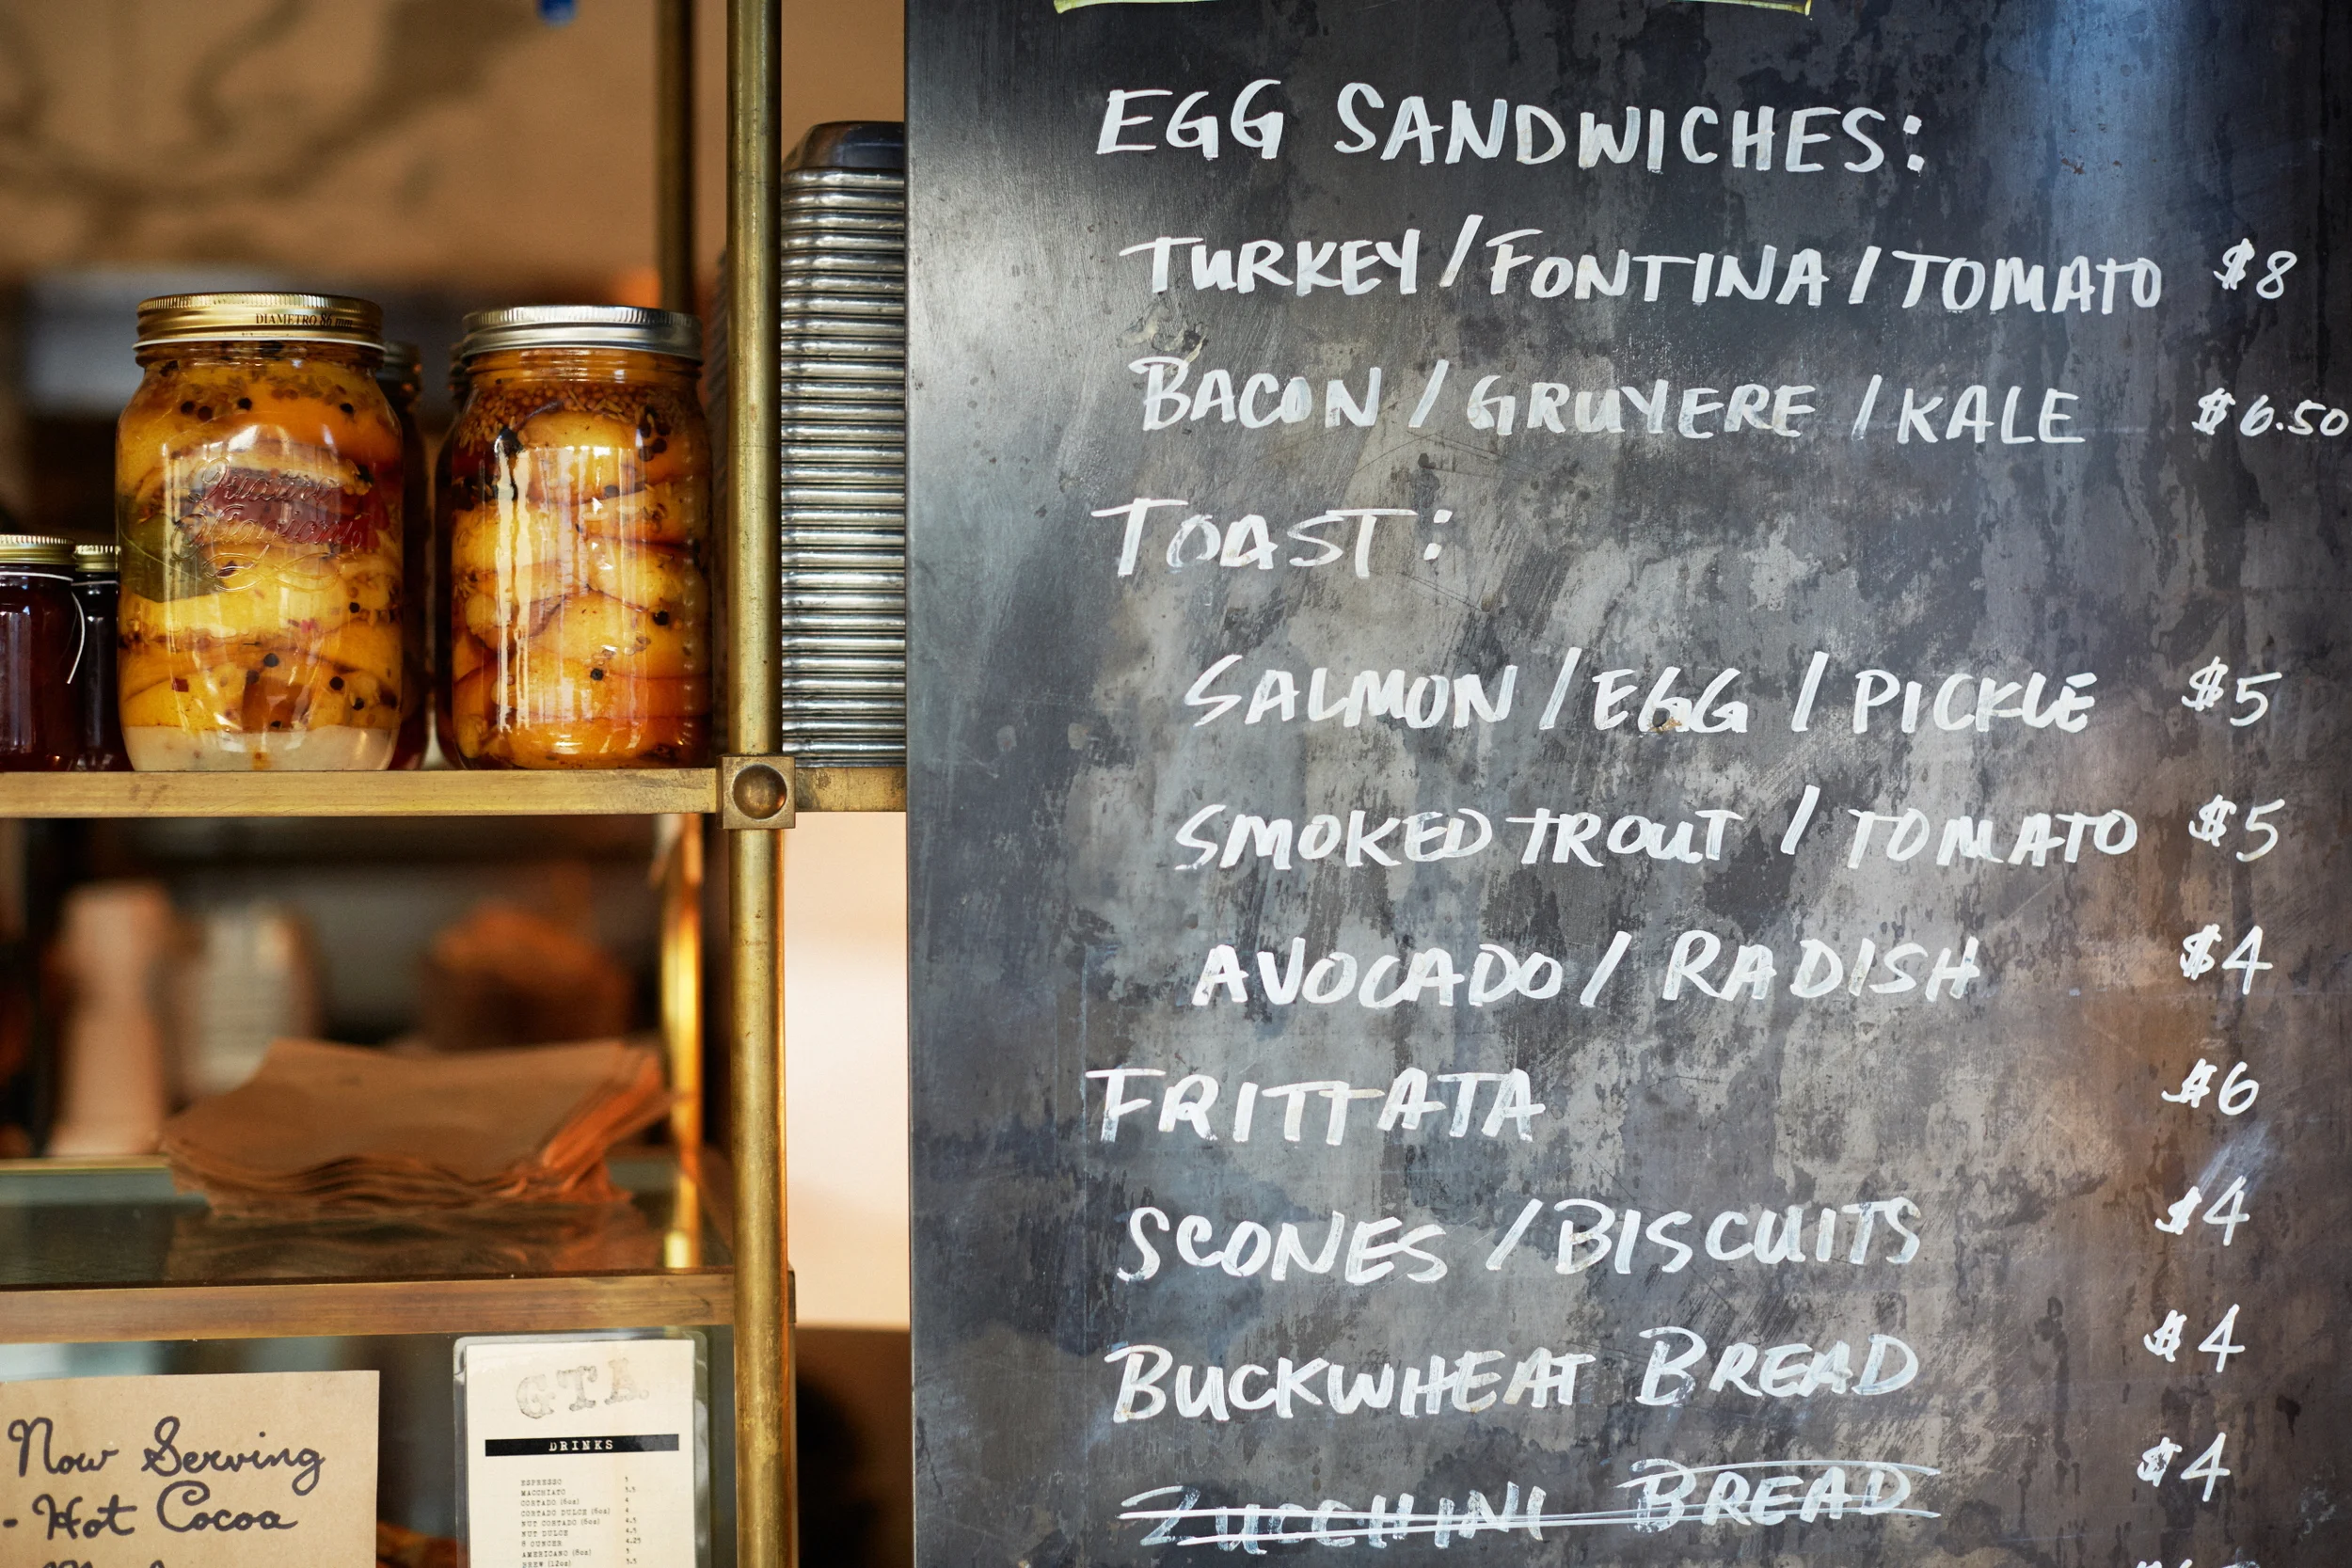 EGG SANDWICHES:
TURKEY/FONTINA/TOMATO $8
BACON/GRUYERE/KALE $6.50
TOAST:
SALMON/EGG/PICKLE $5
SMOKED TROUT/TOMATO $5
AVOCADO/RADISH $4
FRITTATA $6
SCONES/BISCUITS $4
BUCKWHEAT BREAD $4
ZUCCHINI BREAD $4
DIAMETRO 86 mm
Quattro
Stagioni
Now Serving
- Hot Cocoa
GTA
DRINKS
ESPRESSO
MACCHIATO 3.5
CORTADO (6oz) 4
CORTADO DULCE (6oz) 4
NUT CORTADO (6oz) 4.5
NUT DULCE 4.5
8 OUNCER 4.25
AMERICANO (8oz) 3
BREW (12oz) 3.5